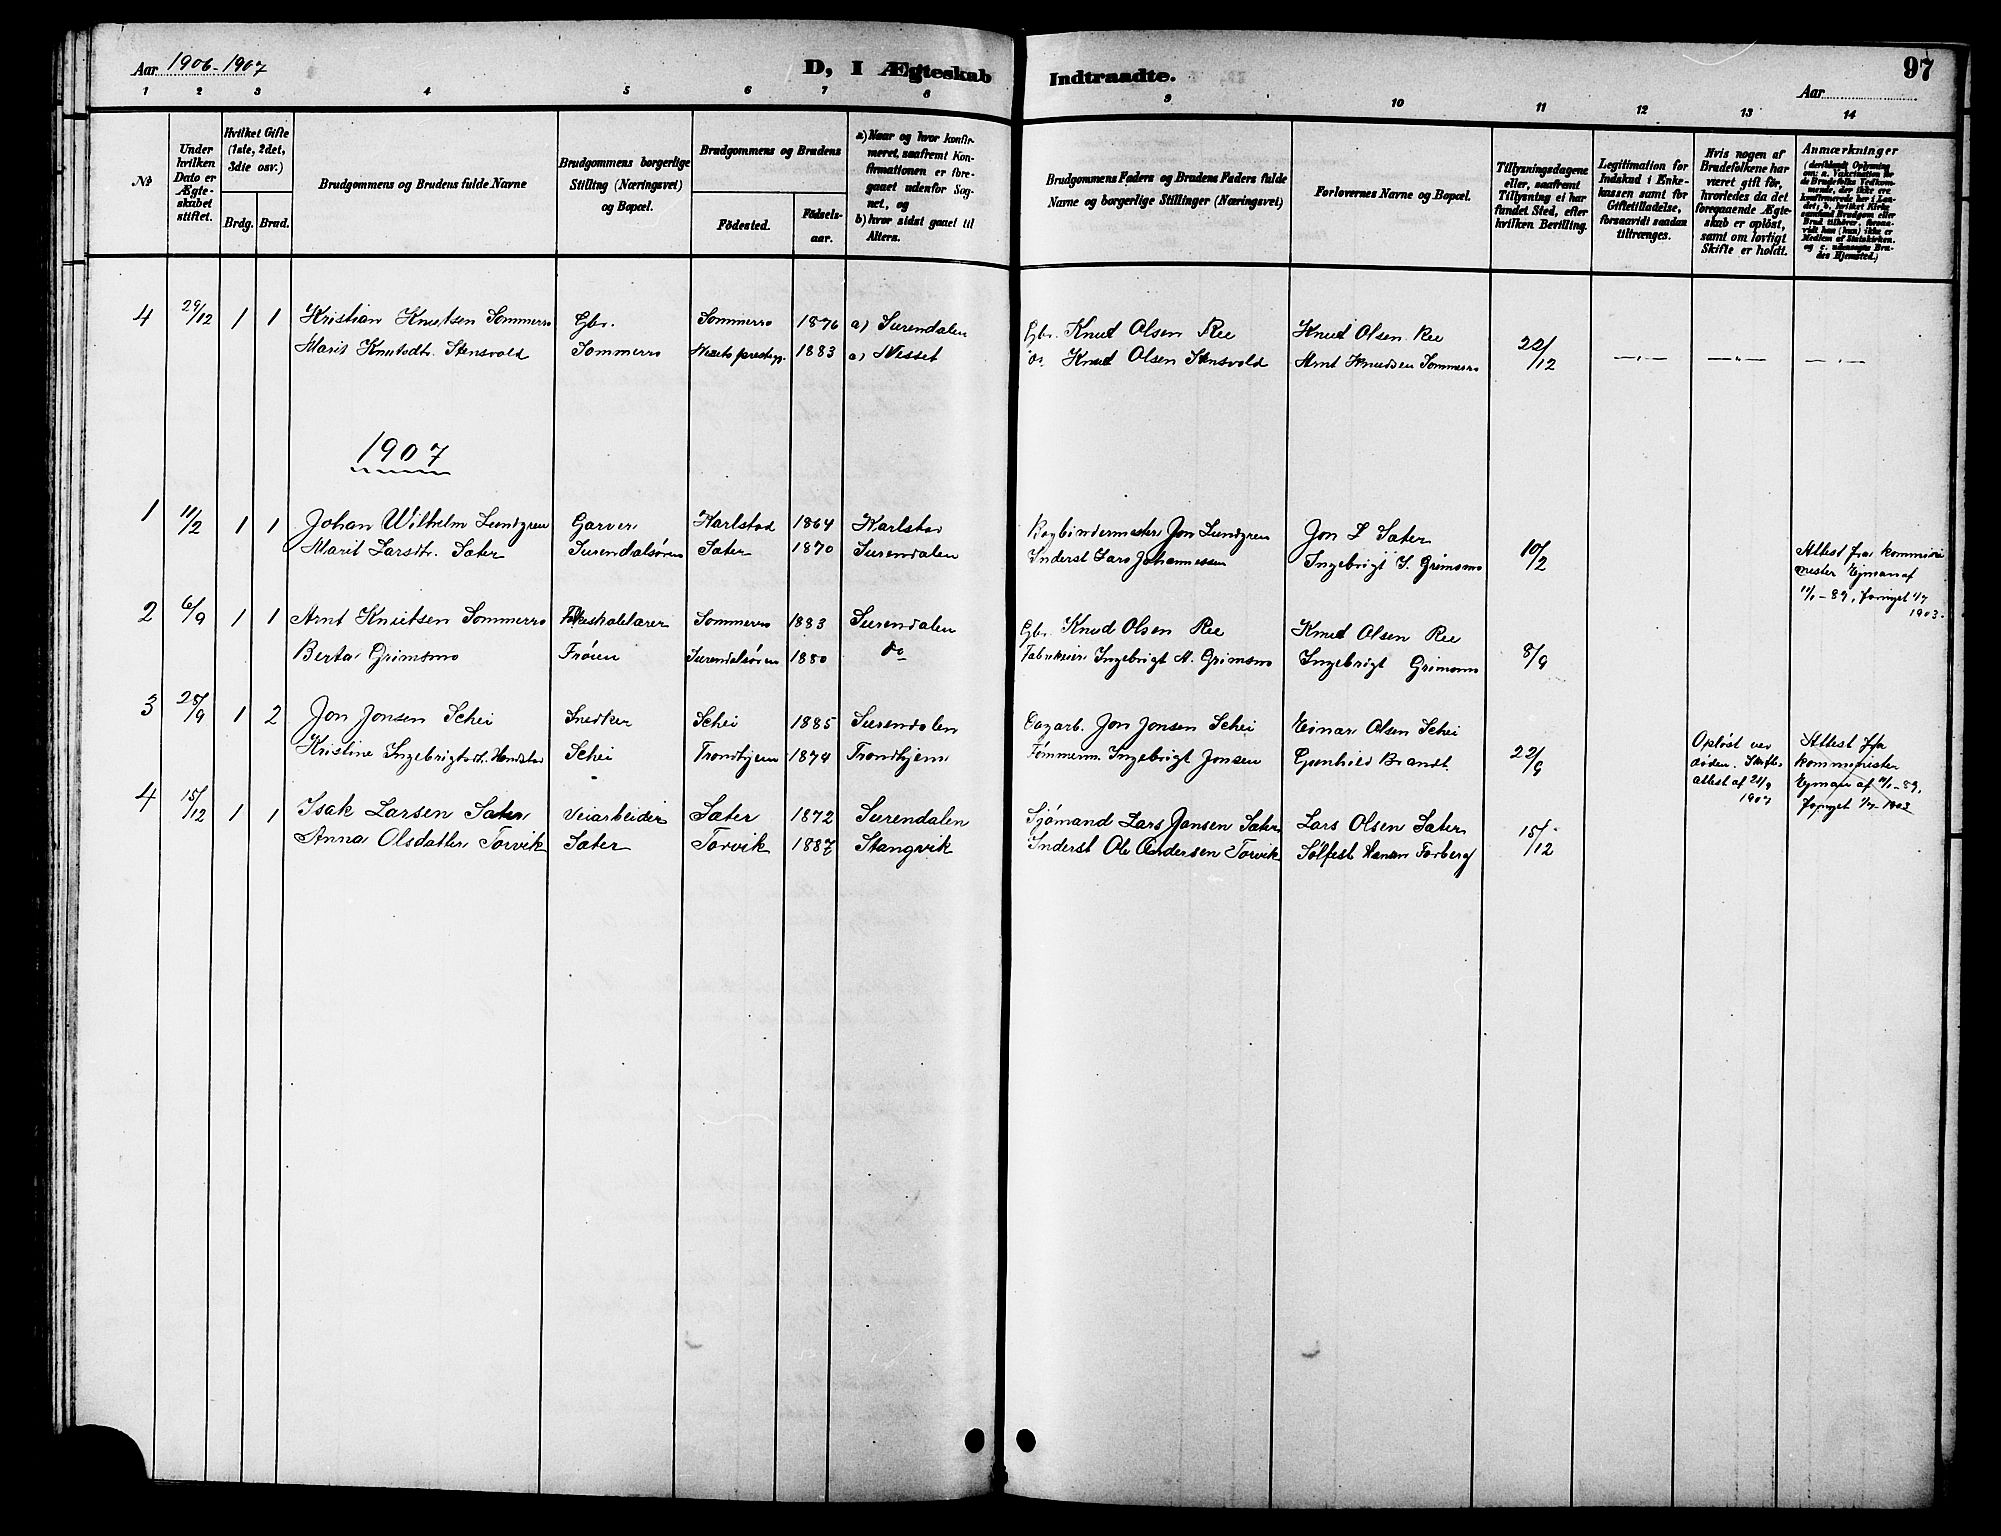 Aar 1906-1907
D, I Ægteskab
Indtraadte.
97
Aar
1 2 3 4 5 6 7 8 9 10 11 12 13 14
№
Under hvilken Dato er Ægteskabet stiftet.
Hvilket Gifte (1ste, 2det, 3die osv.)
Brdg. Brud.
Brudgommens og Brudens fulde Navne
Brudgommens borgerlige Stilling (Næringsvei) og Bopæl.
Brudgommens og Brudens
Födested.
Födsels-aar.
a) Naar og hvor konfirmeret, saafremt Konfirmationen er foregaaet udenfor Sognet, og
b) hvor sidst gaaet til Alters.
Brudgommens Faders og Brudens Faders fulde Navne og borgerlige Stillinger (Næringsvei)
Forlovernes Navne og Bopæl.
Tillysningsdagene eller, saafremt Tillysning ei har fundet Sted, efter hvilken Bevilling.
Legitimation for Indskud i Ænkekassen samt for Giftetilladelse, forsaavidt saadan tiltrænges.
Hvis nogen af Brudefolkene har været gift för, hvorledes da det foregaaende Ægteskab er oplöst, samt om lovligt Skifte er holdt.
Anmærkninger
4 29/12 1 1 Kristian Knutsen Sommerro Gbr. Sommerro 1876 a) Surendalen Gbr. Knud Olsen Ree Knud Olsen Ree 22/12
Marit Knutsdtr. Stensvold Sommerro 1883 a) Nesset Knud Olsen Stensvold Arnt Knudsen Sommerro
1907
1 11/2 1 1 Johan Wilhelm Lundgren Garver Karlstad 1864 Karlstad Bogbindermester Jon Lundgren Jon L Sæter 10/2
Marit Larsdtr. Sæter Surendalsören Sæter 1870 Surendalen Inderst Lars Johannessen Ingebrigt J. Grimsmo Attest fra kommi
nester Ejman af
11/1-89, fornyet 1/7
1903.
2 6/9 1 1 Arnt Knutsen Sommerro Sommerro 1883 Surendalen Gbr. Knud Olsen Ree Knud Olsen Ree 8/9
Berta Grimsmo Frøien Surendalsøren 1880 do Fabrikeier Ingebrigt A. Grimsmo Ingebrigt Grimsmo
3 28/9 1 2 Jon Jonsen Schei Snedker Schei 1885 Surendalen Dagarb. Jon Jonsen Schei Einar Olsen Schei 22/9
Kristine Ingebrigtsdt. Schei Trondhjem 1874 Trondhjem Tømmerm. Ingebrigt Jonsen Gunhild Brandt
Opløst ved
døden. Skifte-
attest af
1907
Attest fra
komminister
Ejman af 11/1-89,
fornyet 1/7-1903
4 15/12 1 1 Isak Larsen Sæter Veiarbeider Sæter 1872 Surendalen Sjømand Lars Jonsen Sæter Lars Olsen Sæter 15/12
Anna Olsdatter Torvik Sæter Torvik 1887 Stangvik Inderst Ole Andersen Torvik Sølfest Hansen Torberg